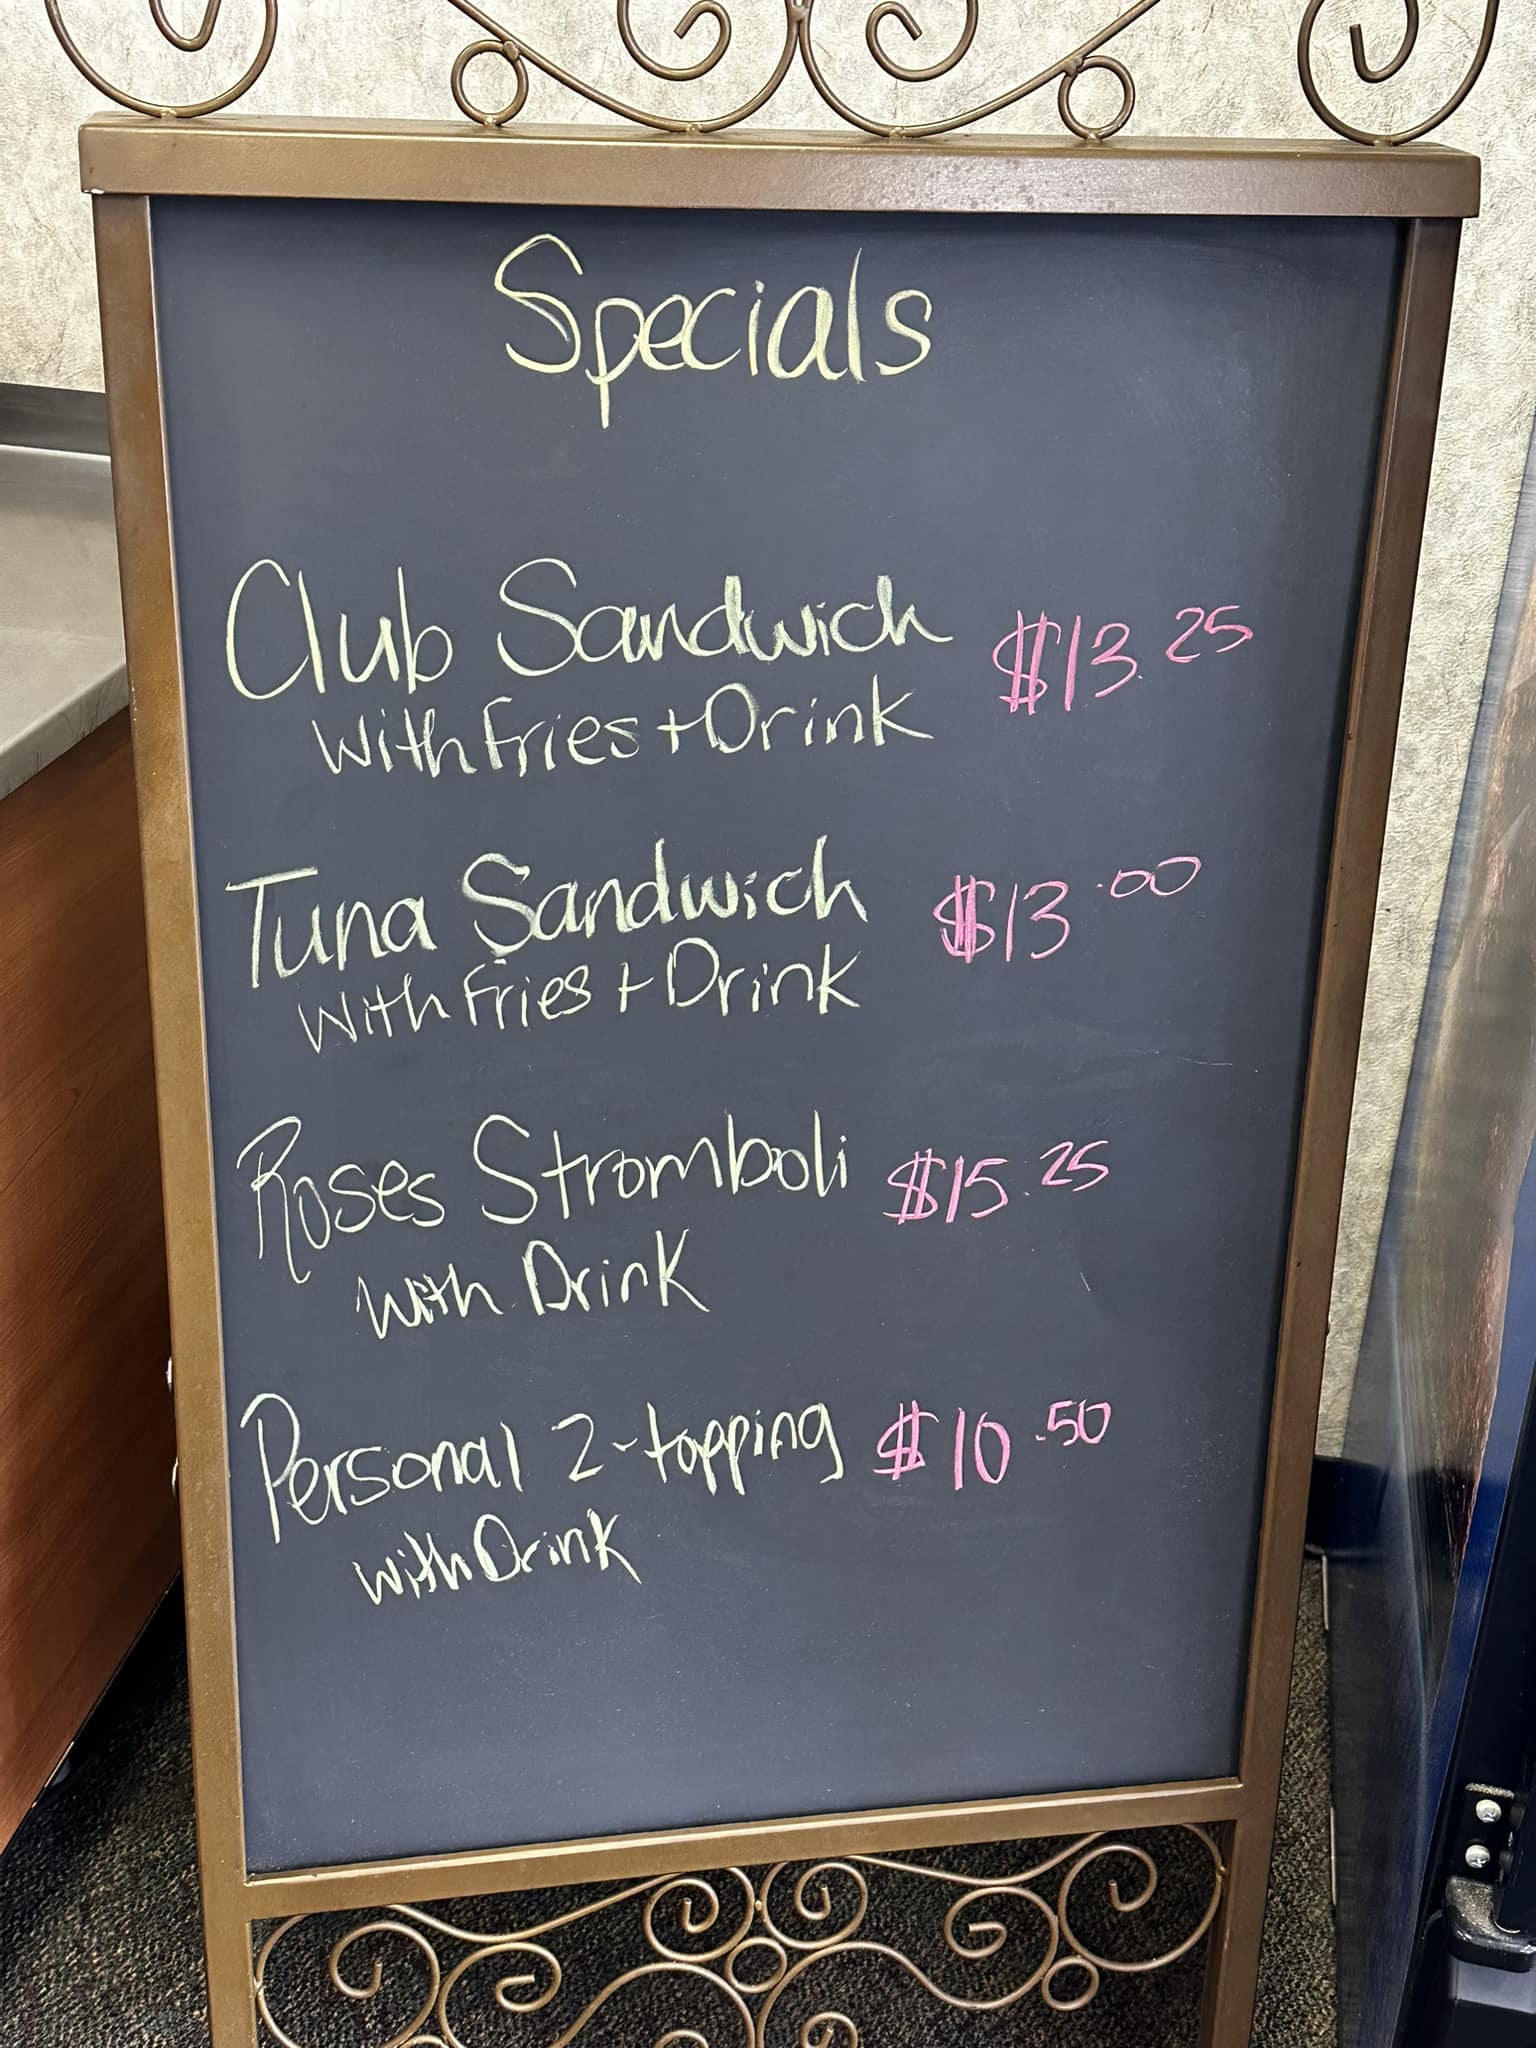 Specials
Club Sandwich $13.25
with Fries + Drink
Tuna Sandwich $13.00
with Fries + Drink
Roses Stromboli $15.25
with Drink
Personal 2-topping $10.50
with Drink